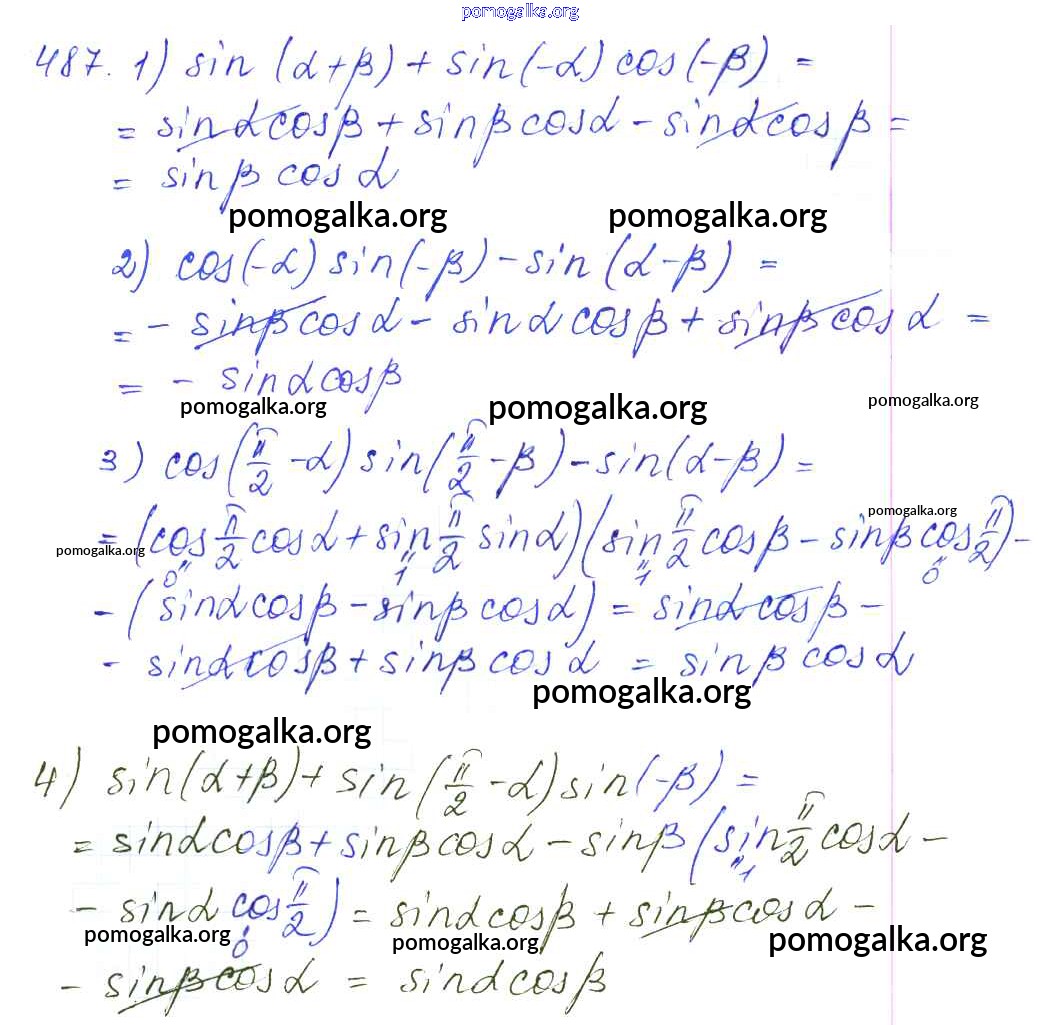 pomogalka.org
487. 1) sin (α+β) + sin(-α) cos(-β) =
= sinαcosβ + sinβcosα - sinαcosβ =
= sinβ cosα
pomogalka.org pomogalka.org
2) cos(-α) sin(-β) - sin(α-β) =
= - sinβcosα - sinαcosβ + sinβcosα =
= - sinαcosβ
pomogalka.org pomogalka.org pomogalka.org
3) cos(π/2 - α) sin(π/2 - β) - sin(α-β) =
pomogalka.org
= (cos π/2 cosα + sin π/2 sinα)(sin π/2 cosβ - sinβ cos π/2) -
pomogalka.org
" 0 " 1 " 1 " 0
- (sinαcosβ - sinβcosα) = sinαcosβ -
- sinαcosβ + sinβcosα = sinβcosα
pomogalka.org
pomogalka.org
4) sin(α+β) + sin(π/2 - α) sin(-β) =
= sinαcosβ + sinβcosα - sinβ (sin π/2 cosα -
" 1
- sinα cos π/2) = sinαcosβ + sinβcosα -
" 0
pomogalka.org pomogalka.org pomogalka.org
- sinβcosα = sinαcosβ